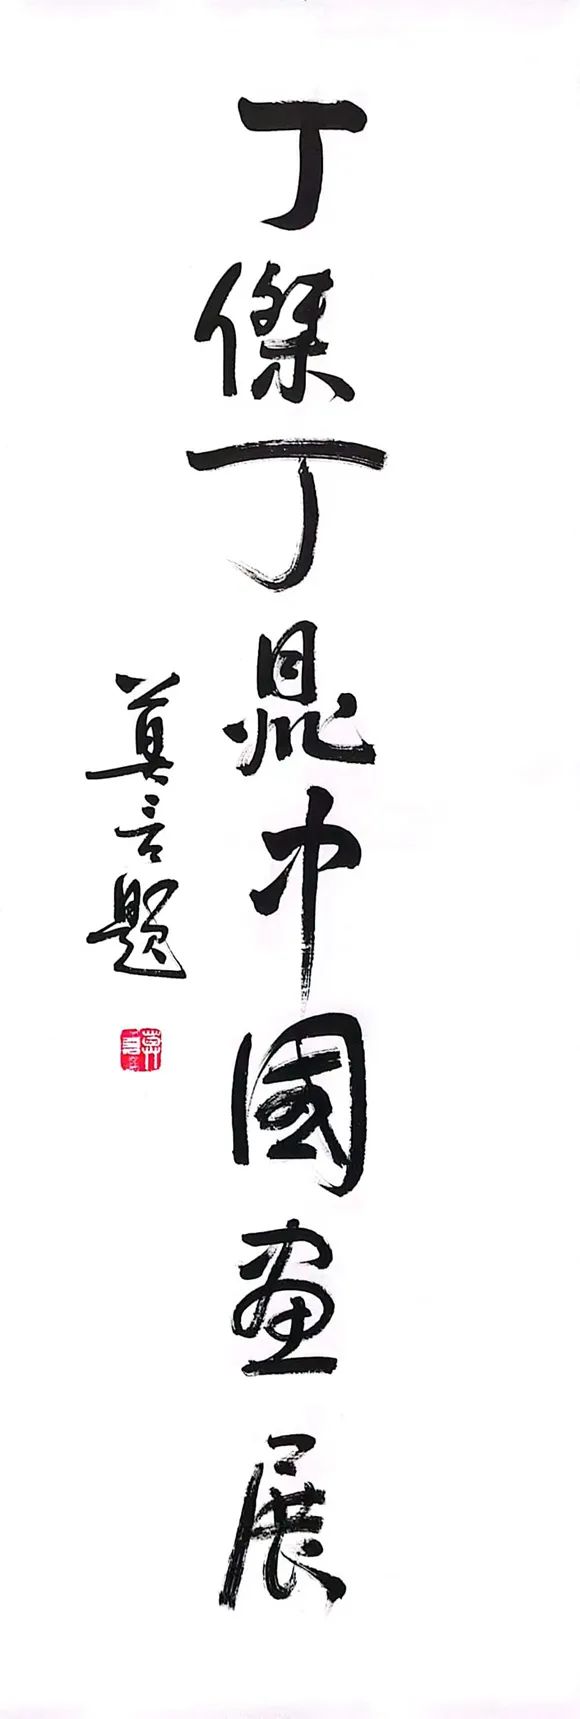 丁傑丁鼎中國畫展
莫言題